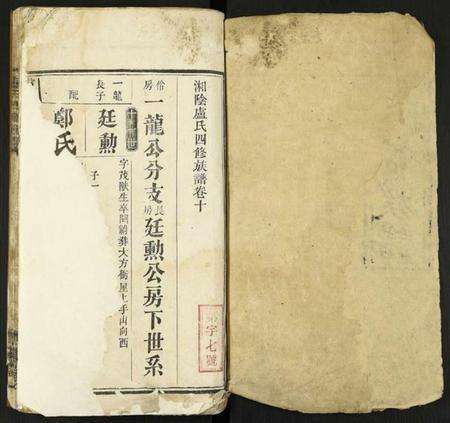 湘陰盧氏四修族譜卷十
俗房一龍公分支長房廷勳公房下世系
一龍長子
廷勳
字茂猷生卒闕葬大方衝屋上手山向西
配
鄭氏
子一
字七號